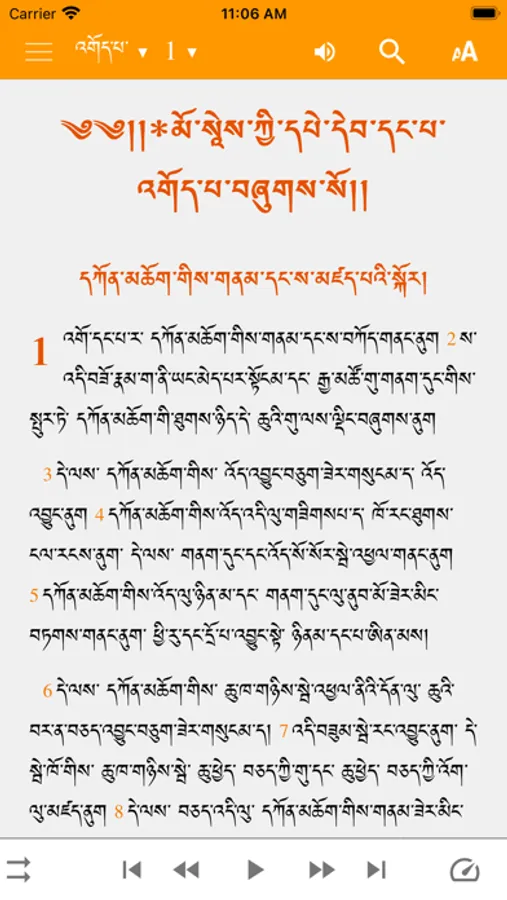 Carrier 11:06 AM
འགོད་པ་ ▼ 1 ▼
AA
༄༄།།*མོ་སྭེས་ཀྱི་དཔེ་དེབ་དང་པ་
འགོད་པ་བཞུགས་སོ།།
དཀོན་མཆོག་གིས་གནམ་དང་ས་མཛད་པའི་སྐོར།
1 འགོ་དང་པ་ར་ དཀོན་མཆོག་གིས་གནམ་དང་ས་བཀོད་གནང་ནུག 2 ས་
འདི་བཟོ་རྣམ་ག་ནི་ཡང་མེད་པར་སྟོངམ་དང་ རྒྱ་མཚོ་གུ་གནག་དུང་གིས་
སྤུར་ཏེ་ དཀོན་མཆོག་གི་ཐུགས་ཉིད་དེ་ ཆུའི་གུ་ལས་ལྡིང་བཞུགས་ནུག
3 དེ་ལས་ དཀོན་མཆོག་གིས་ འོད་འབྱུང་བཅུག་ཟེར་གསུངམ་ད་ འོད་
འབྱུང་ནུག 4 དཀོན་མཆོག་གིས་འོད་འདི་ལུ་གཟིགསཔ་ད་ ཁོ་རང་ཐུགས་
ངལ་རངས་ནུག་ དེ་ལས་ གནག་དུང་དང་འོད་སོ་སོར་སྦེ་འཕྱལ་གནང་ནུག
5 དཀོན་མཆོག་གིས་འོད་ལུ་ཉིན་མ་དང་ གནག་དུང་ལུ་ནུབ་མོ་ཟེར་མིང་
བཏགས་གནང་ནུག་ ཕྱི་རུ་དང་དྲོ་པ་འབྱུང་སྟེ་ ཉིནམ་དང་པ་ཨིན་མས།
6 དེ་ལས་ དཀོན་མཆོག་གིས་ ཆུ་ཁ་གཉིས་སྦེ་འཕྱལ་ནིའི་དོན་ལུ་ ཆུའི་
བར་ན་བཅད་འབྱུང་བཅུག་ཟེར་གསུངམ་ད། 7 འདི་བཟུམ་སྦེ་རང་འབྱུང་ནུག་ དེ་
སྦེ་ཁོ་གིས་ ཆུ་ཁ་གཉིས་སྦེ་ ཆུ་ཕྱེད་ བཅད་ཀྱི་གུ་དང་ ཆུ་ཕྱེད་ བཅད་ཀྱི་འོག་
ལུ་མཛད་ནུག 8 དེ་ལས་ བཅད་འདི་ལུ་ དཀོན་མཆོག་གིས་གནམ་ཟེར་མིང་